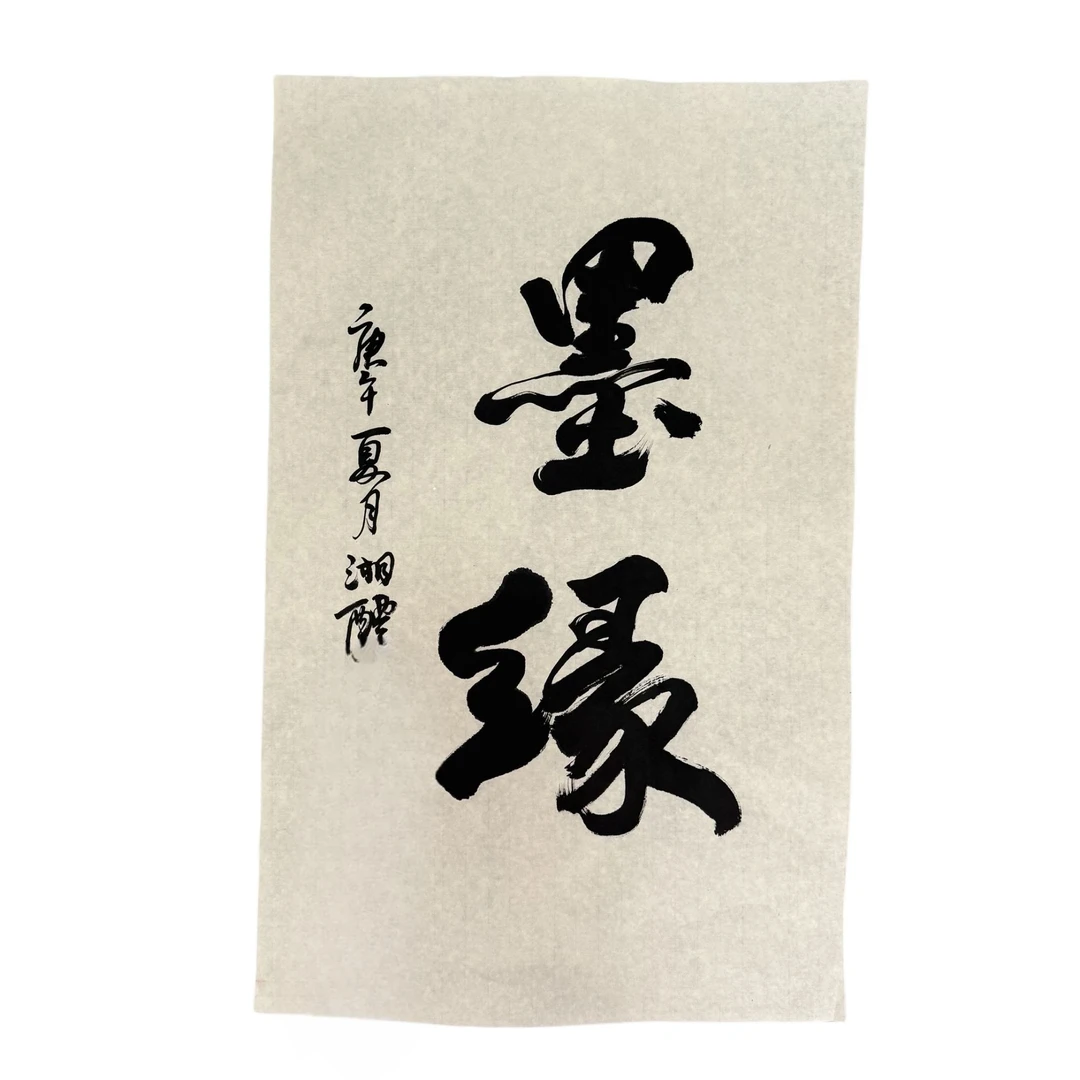 墨缘
庚午夏月湘醴